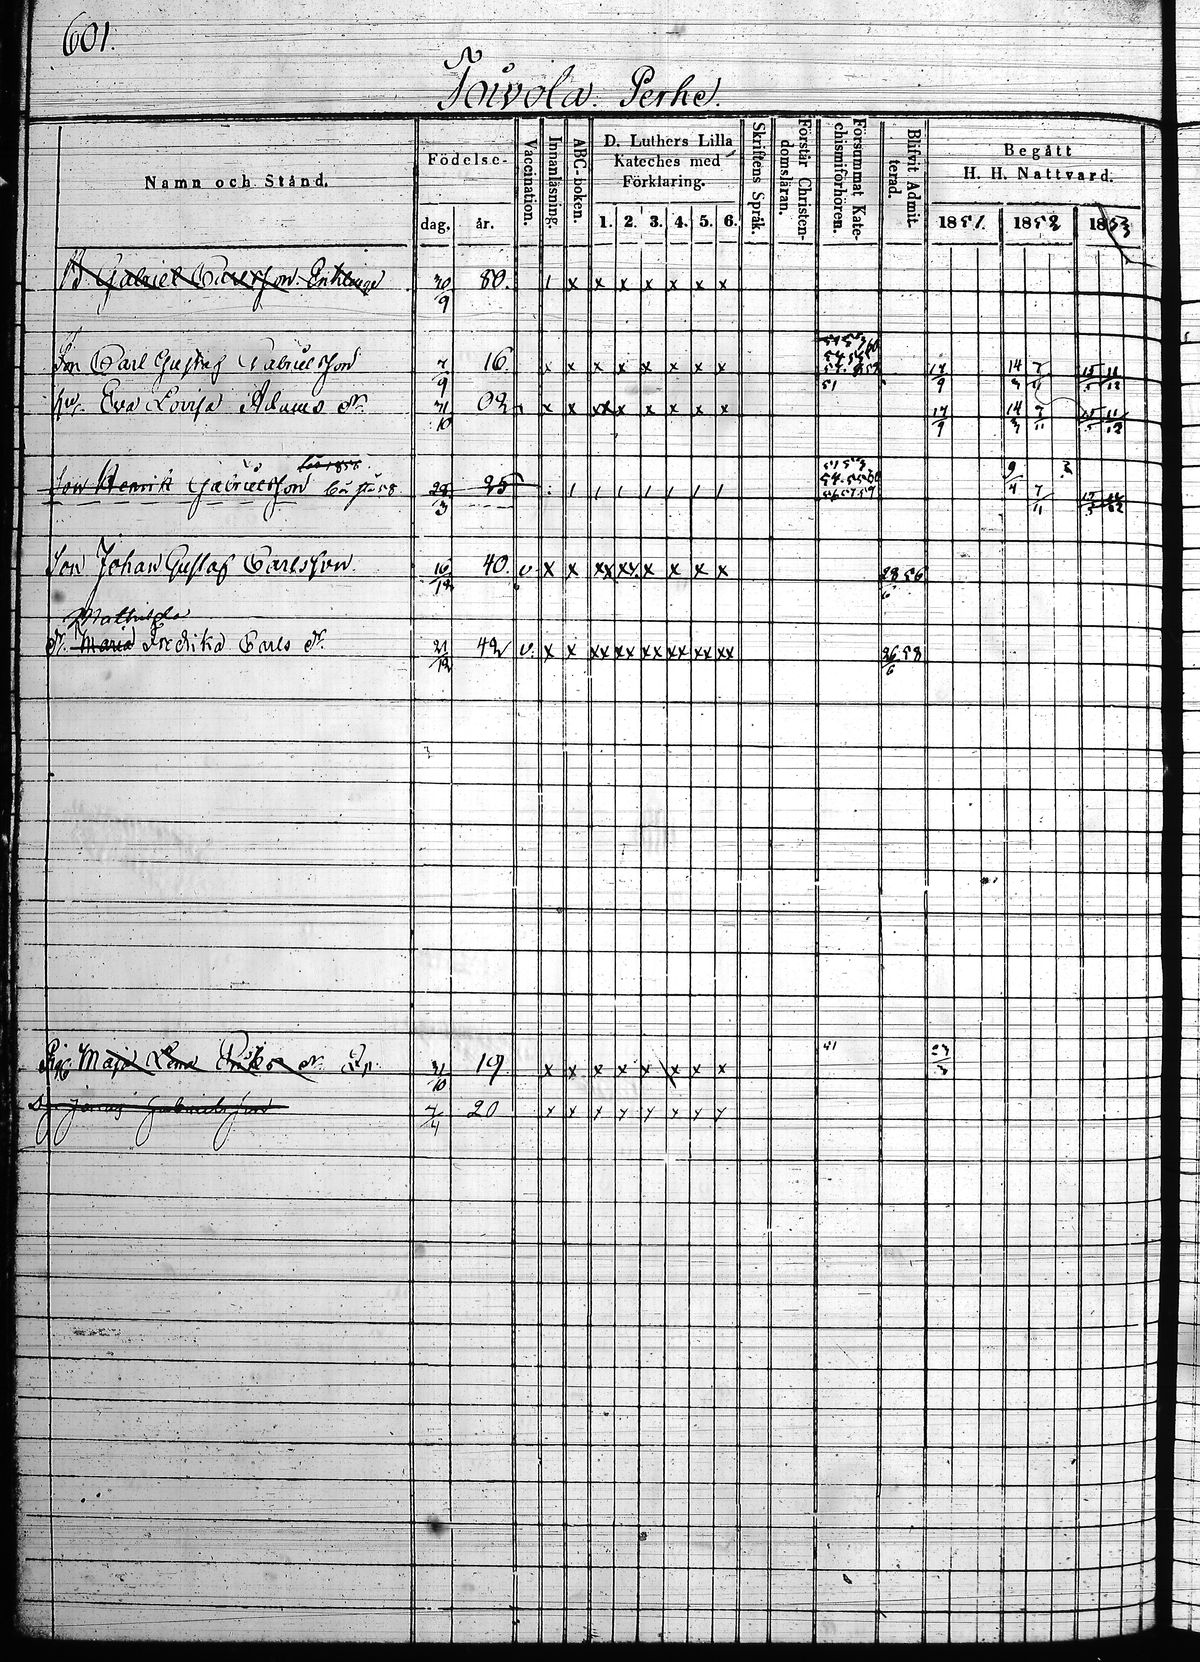 601.
Toivola. Perhe.
Namn och Stånd.
Födelse-
dag. år.
Vaccination.
Innanläsning.
ABC-boken.
D. Luthers Lilla
Kateches med
Förklaring.
1. 2. 3. 4. 5. 6.
Skriftens Språk.
Förstår Christen-
domsläran.
Försummat Kate-
chismiförhören.
Blifvit Admit-
terad.
Begått
H. H. Nattvard.
1851. 1852 1853
B. Gabriel Carlsson Enkling 30/9 80. 1 x x x x x x x
Son Carl Gustaf Gabrielsson 7/9 16. x x x x x x x x 17/9 14/3 7/11 15/5 11/12
hu. Eva Lovisa Adams dr. 31/10 02 x x xx x x x x x 17/9 14/3 7/11 15/5 11/12
Son Henrik Gabrielsson 25 9/4 7/11
Son Johan Gustaf Carlsson. 16/12 40. v x x xx xx x x x x 28/6 56
Mathilda
dr. Maria Fredrika Carls dr. 21/12 42 v. x x xx xx xx xx xx xx 26/6 58
Pig. Maja Lena dr. 31/10 19 x x x x x x x x
Dr Jonas Gabrielsson 7/4 20 x x x x x x x x